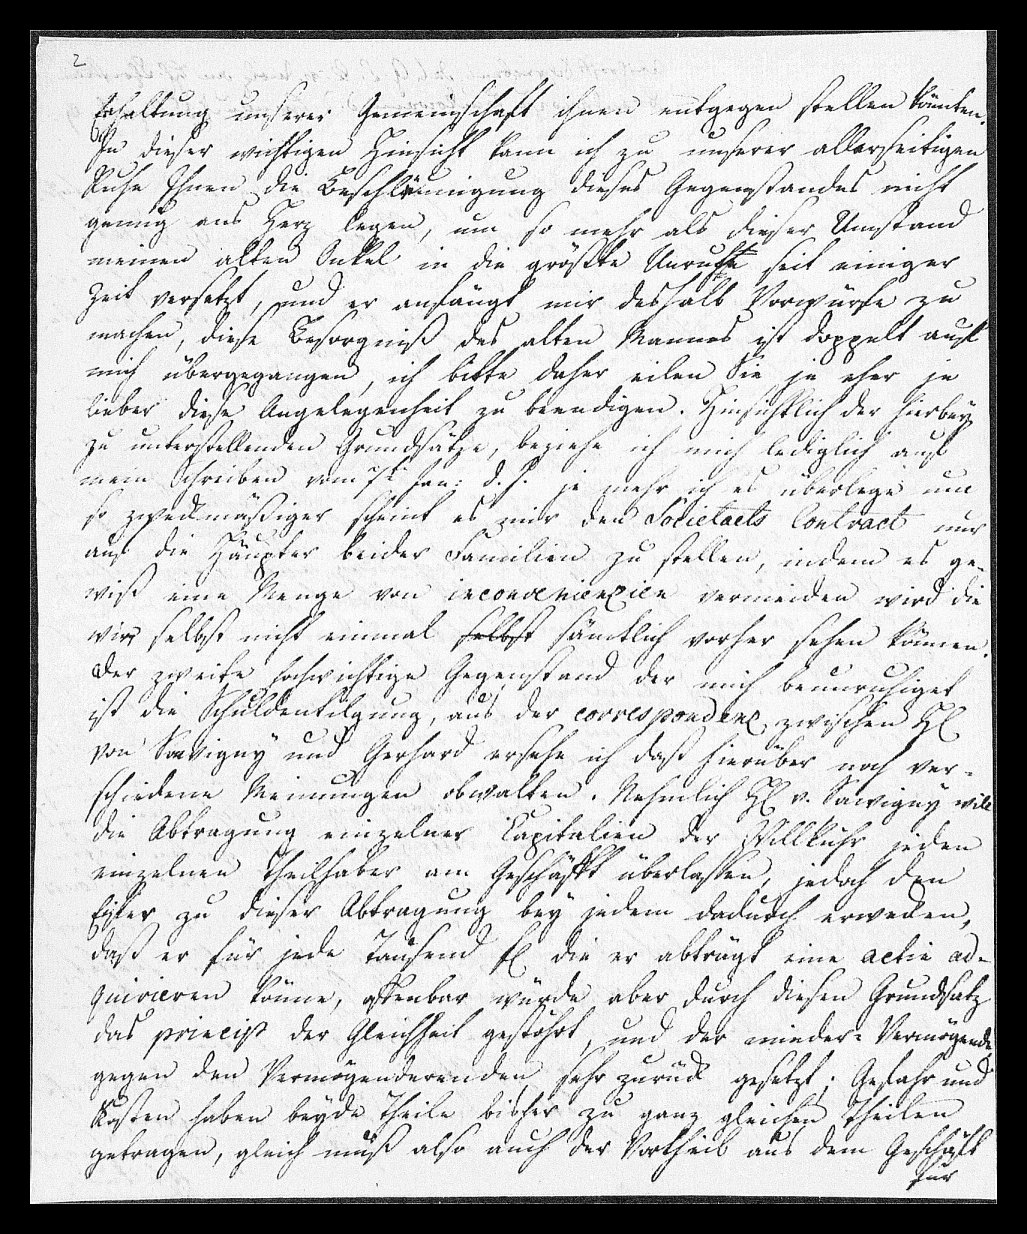 2
Erhaltung unserer Gemeinschaft ihnen entgegen stellen könnten.
In dieser wichtigen Hinsicht kann ich zu unserer allerseitigen
Ruhe Ihnen die Beschleunigung dieses Gegenstandes nicht
genug ans Herz legen, um so mehr als dieser Umstand
meinen alten Onkel in die größte Unruhe seit einiger
Zeit versetzt, und er anfängt mir deshalb Vorwürfe zu
machen, diese Besorgniß des alten Mannes ist doppelt auf
mich übergegangen, ich bitte daher eilen Sie je eher je
lieber diese Angelegenheit zu beendigen. Hinsichtlich der hierbey
zu unterstellenden Grundsätze, beziehe ich mich lediglich auf
mein Schreiben vom 7t Jan: d. J. je mehr ich es überlege um
so zweckmäßiger scheint es mir den Societaets Contract nur
auf die Häupter beider Familien zu stellen, indem es ge-
wiß eine Menge von inconvenienzien vermeiden wird die
wir selbst nicht einmal selbst sämtlich vorher sehen können.
Der zweite hochwichtige Gegenstand der mich beunruhiget
ist die Schuldentilgung, aus der correspondenz zwischen H
von Savigny und Gerhard ersehe ich daß hierüber noch ver-
schiedene Meinungen obwalten. Nehmlich H v. Sawigny will
die Abtragung einzelner Capitalien der Willkühr jeden
einzelnen Theilhaber am Geschäfft überlassen, jedoch den
Eifer zu dieser Abtragung bey jedem dadurch erwecken,
daß er für jede Tausend fl die er abträgt eine actie ad-
quirieren könne, offenbar würde aber durch diesen Grundsatz
das princip der Gleichheit gestöhrt, und der minder-Vermögende
gegen den Vermögenderenden sehr zurück gesetzt; Gefahr und
Kosten haben beyde Theile bisher zu ganz gleichen Theilen
getragen, gleich muß also auch der Vortheil aus dem Geschäft
für